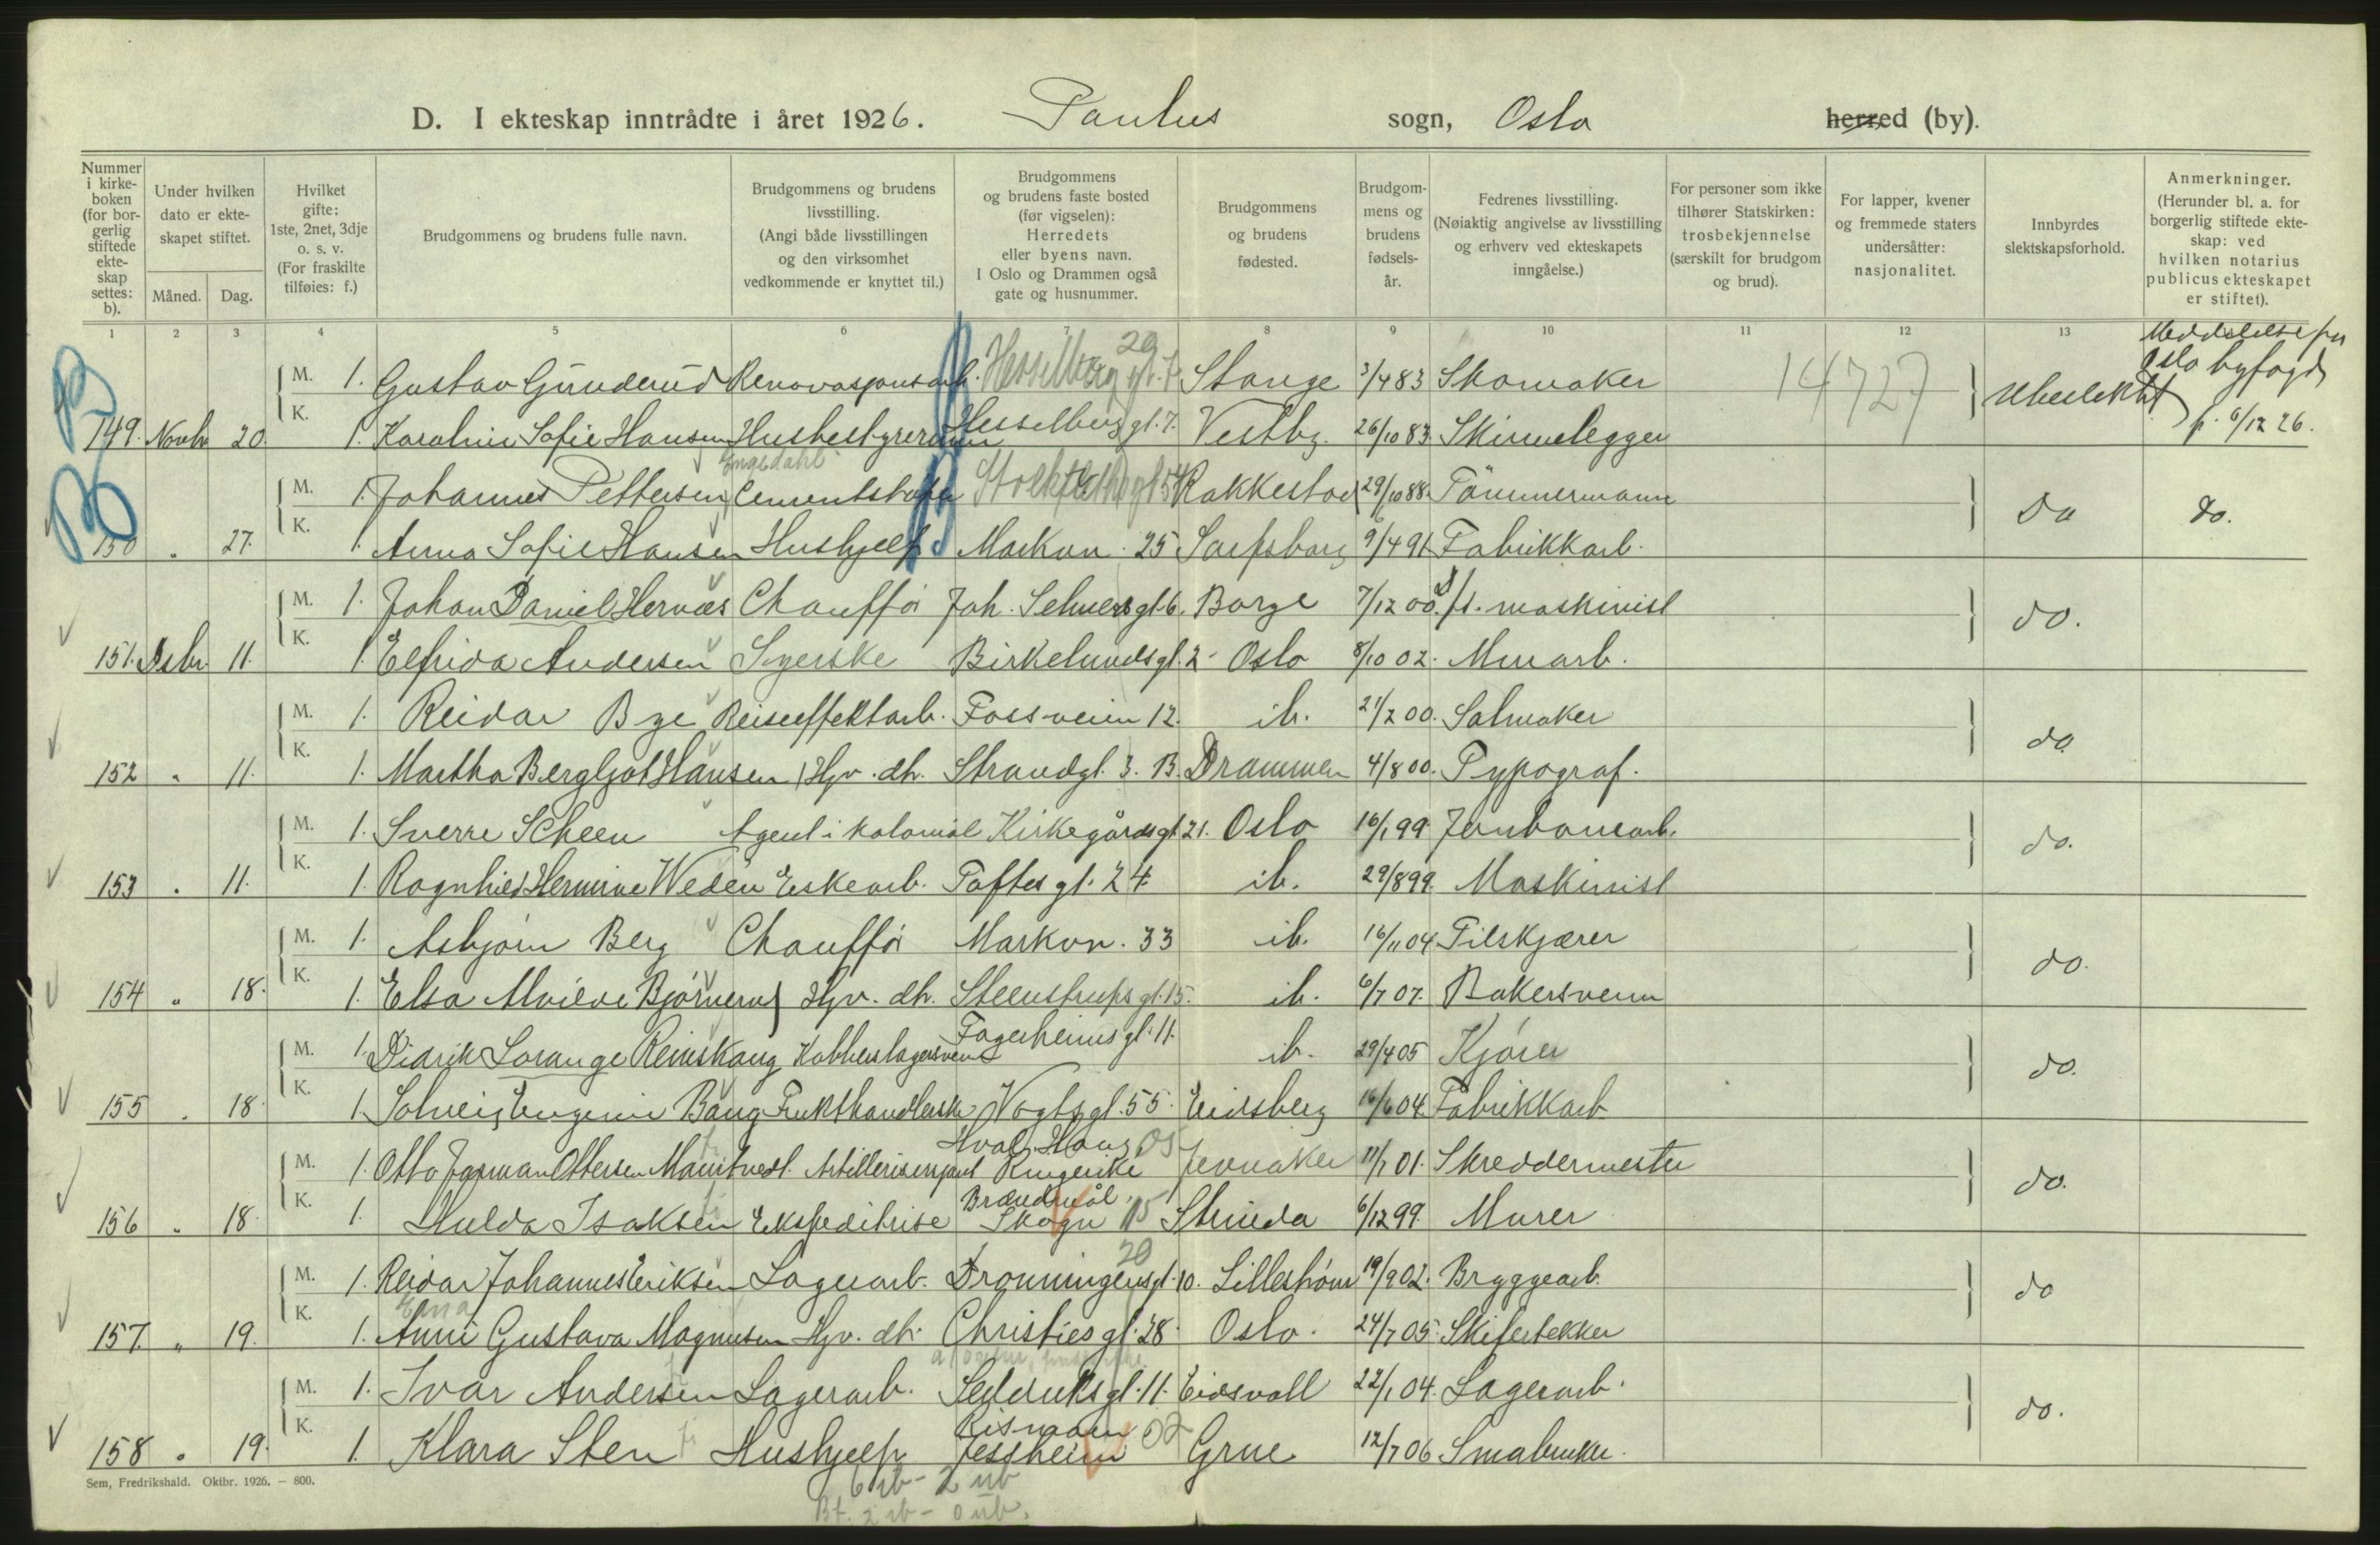 D. I ekteskap inntrådte i året 1926. Paulus sogn, Oslo herred (by).
Nummer i kirkeboken (for borgerlig stiftede ekteskap settes: b).
Under hvilken dato er ekteskapet stiftet.
Måned. Dag.
Hvilket gifte: 1ste, 2net, 3dje o. s. v. (For fraskilte tilføies: f.)
Brudgommens og brudens fulle navn.
Brudgommens og brudens livsstilling. (Angi både livsstillingen og den virksomhet vedkommende er knyttet til.)
Brudgommens og brudens faste bosted (før vigselen): Herredets eller byens navn. I Oslo og Drammen også gate og husnummer.
Brudgommens og brudens fødested.
Brudgommens og brudens fødselsår.
Fedrenes livsstilling. (Nøiaktig angivelse av livsstilling og erhverv ved ekteskapets inngåelse.)
For personer som ikke tilhører Statskirken: trosbekjennelse (særskilt for brudgom og brud).
For lapper, kvener og fremmede staters undersåtter: nasjonalitet.
Innbyrdes slektskapsforhold.
Anmerkninger. (Herunder bl. a. for borgerlig stiftede ekteskap: ved hvilken notarius publicus ekteskapet er stiftet).
1 2 3 4 5 6 7 8 9 10 11 12 13
29 Meddelelse fra
B M. 1. Gustav Gunderud Renovasjonsarb. Hesselberg gt. 7 Stange 3/4 83 Skomaker 14727 Ubeslektet Oslo byfogd
149. Novbr 20. K. 1. Karoline Sofie Hansen Husbestyrerinne Hesselberg gt. 7. Vestby. 26/10 83. Skinnelegger f. 6/12 26.
Engedahl
B M. 1. Johannes Pettersen Cementstøper Stockflethsgt 54 Rakkestad 29/10 88. Tømmermann Do do.
150 " 27. K. 1. Anna Sofie Hansen Hushjelp Markvn. 25 Sarpsborg 9/4 91 Fabrikkarb.
M. 1. Johan Daniel Hernæs Chauffør Joh. Selmersgt. 6. Borge 7/12 00. f. maskinist do.
151. Desbr. 11. K. 1. Elfrida Andersen Syerske Birkelundsgt. 2 Oslo 8/10 02. Murarb.
M. 1. Reidar Bye Reiseeffektarb. Fossveien 12. ib. 21/2 00. Salmaker do.
152 " 11. K. 1. Martha Bergljot Hansen Hjv. dh. Strandgt. 3. B. Drammen 4/8 00. Typograf.
M. 1. Sverre Scheen Agent i kolonial Kirkegårdsgt 21. Oslo 16/1 99 Jernbanearb. do.
153 " 11. K. 1. Ragnhild Hermine Wedén Eskearb. Toftes gt. 24. ib. 29/8 99. Maskinist
M. 1. Asbjørn Berg Chauffør Markvn. 33 ib. 16/11 04 Filskjærer do.
154 " 18. K. 1. Elsa Alvilde Bjørnerud Hjv. dh. Steenstrups gt. 15. ib. 6/7 07. Bakersvenn
M. 1. Didrik Lorange Reinskaug Kobberslagersvenn Fagerheimsgt. 11. ib. 29/4 05 Kjører do.
155 " 18. K. 1. Solveig Eugenie Baug Frukthandlerske Vogtsgt. 55. Eidsberg 16/6 04. Fabrikkarb
Hval. Haug 05
M. 1. Otto Jarman Ottersen Mamtvedt. Artillerisersjant Ringerike Jevnaker 11/7 01. Skreddermester do.
Brændmål
156 " 18. K. 1. Hulda Isaksen Ekspeditrise Skogn 15 Strinda 6/12 99. Murer
20
M. 1. Reidar Johannes Eriksen Lagerarb. Dronningensgt. 10. Lillestrøm 19/9 02. Bryggearb. do
157. " 19. K. 1. Anni Gustava Magnusen Hjv. dh. Christies gt. 28. Oslo. 24/7 05. Skifertekker
M. 1. Ivar Andersen Lagerarb. Seilduksgt. 11. Eidsvoll 22/1 04. Lagerarb. do.
Rismoen
158 " 19. K. 1. Klara Sten Hushjelp Jessheim 02 Grue 12/7 06 Småbruker.
Sem, Fredrikshald. Oktbr. 1926. – 800.
6 ib - 2 ub
Bf. 2 ib - 0 ub.